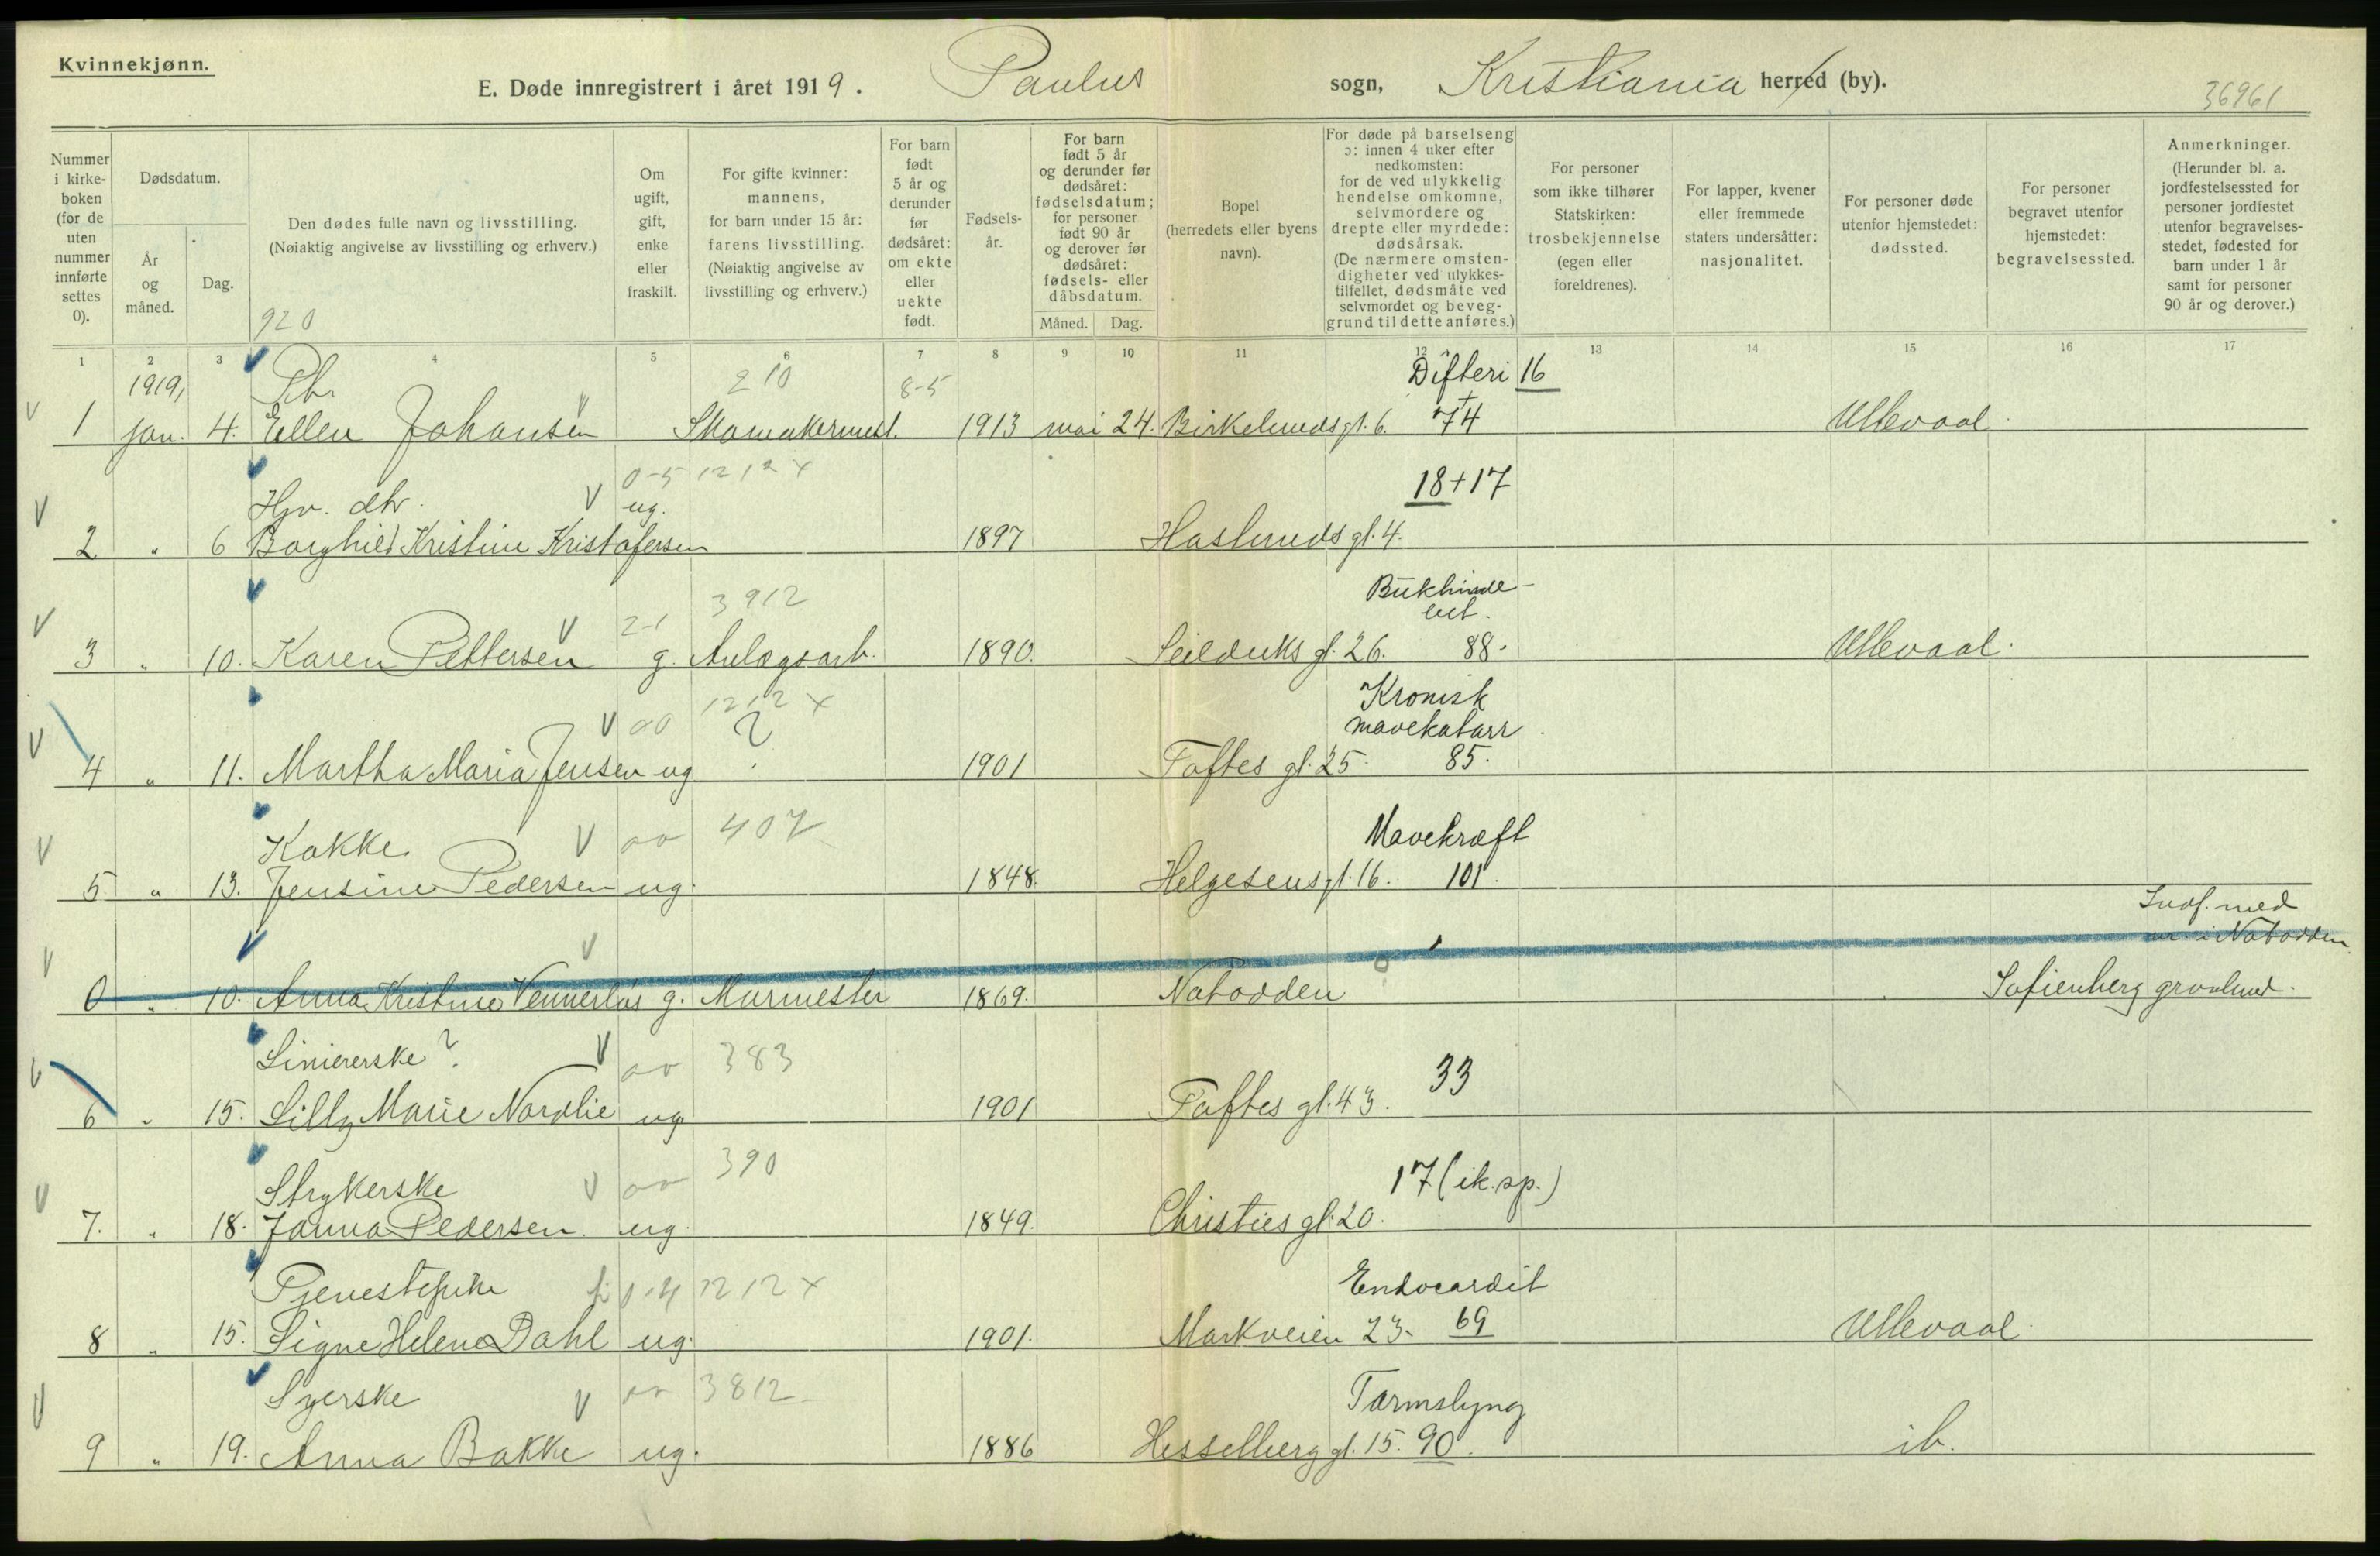 Kvinnekjønn.
E. Døde innregistrert i året 1919. Paulus sogn, Kristiania herred (by).
36961
Nummer i kirke-boken (for de uten nummer innførte settes 0).
Dødsdatum.
År og måned.
Dag.
Den dødes fulle navn og livsstilling.
(Nøiaktig angivelse av livsstilling og erhverv.)
920
Om ugift, gift, enke eller fraskilt.
For gifte kvinner: mannens, for barn under 15 år: farens livsstilling.
(Nøiaktig angivelse av livsstilling og erhverv.)
For barn født 5 år og derunder før dødsåret: om ekte eller uekte født.
Fødsels-år.
For barn født 5 år og derunder før dødsåret: fødselsdatum; for personer født 90 år og derover før dødsåret: fødsels- eller dåbsdatum.
Måned. Dag.
Bopel (herredets eller byens navn).
For døde på barselseng ɔ: innen 4 uker efter nedkomsten: for de ved ulykkelig hendelse omkomne, selvmordere og drepte eller myrdede: dødsårsak.
(De nærmere omsten-digheter ved ulykkes-tilfellet, dødsmåte ved selvmordet og beveg-grund til dette anføres.)
For personer som ikke tilhører Statskirken: trosbekjennelse (egen eller foreldrenes).
For lapper, kvener eller fremmede staters undersåtter: nasjonalitet.
For personer døde utenfor hjemstedet: dødssted.
For personer begravet utenfor hjemstedet: begravelsessted.
Anmerkninger.
(Herunder bl. a. jordfestelsessted for personer jordfestet utenfor begravelses-stedet, fødested for barn under 1 år samt for personer 90 år og derover.)
1 2 3 4 5 6 7 8 9 10 11 12 13 14 15 16 17
1919, Pb. 210 8-5 Difteri 16
1 jan. 4. Ellen Johansen Skomakermest. 1913 mai 24. Birkelundsgt. 6. 74 Ullevaal.
0-5 1212 x 18+17
Hjv. dtr. ug.
2 " 6 Borghild Kristine Kristofersen 1897 Haslunds gt. 4.
2-1 3912 Bukhinde-
bet.
3 " 10. Karen Pettersen g. Anlegsarb. 1890. Seilduks gt. 26. 88. Ullevaal.
00 1212 x Kronisk
? mavekatarr
4 " 11. Martha Maria Jensen ug 1901 Toftes gt. 25. 85.
Kokke oo 407 Mavekræft
5 " 13. Jensine Pedersen ug. 1848. Helgesensgt. 16. 101.
Indf. med
nr. i Notodden
0 " 10. Anna Kristine Vennerlös g. Murmester 1869. Notodden Sofienberg gravlund.
Liniererske? oo 383 33
6 " 15. Lilly Marie Nordlie ug. 1901 Toftes gt. 43.
Strykerske oo 390 17 (ik. sp.)
7. " 18. Janna Pedersen. ug. 1849. Christies gt. 20.
Tjenestepike 0-4 1212 x Endocardit
8 " 15. Signe Helene Dahl ug. 1901. Markveien 23. 69 Ullevaal.
Syerske oo 3812 Tarmslyng
9 " 19. Anna Bakke ug. 1886 Hesselberg gt. 15. 90. ib.